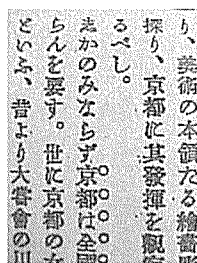 り、美術の本領たる繪畵彫
探り、京都に其發揮を觀察
るべし。
志かのみならず京都は全國
らんを要す。世に京都の女
といふ、昔より大嘗會の